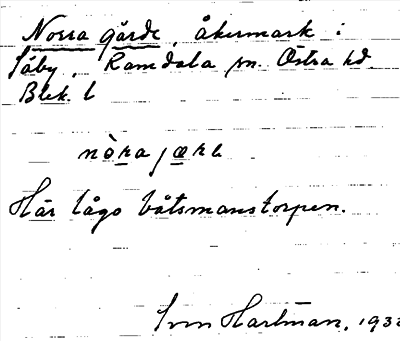 Norra gärde, åkermark i
Säby, Ramdala sn. Östra hd.
Blek. l
Här lågo båtsmanstorpen.
Sven Hartman, 193